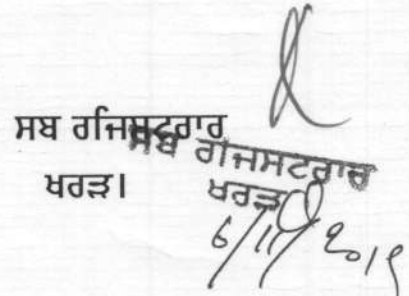 ਸਬ ਰਜਿਸਟਰਾਰ
ਖਰੜ।
ਸਬ ਰਜਿਸਟਰਾਰ
ਖਰੜ
6/11/2019